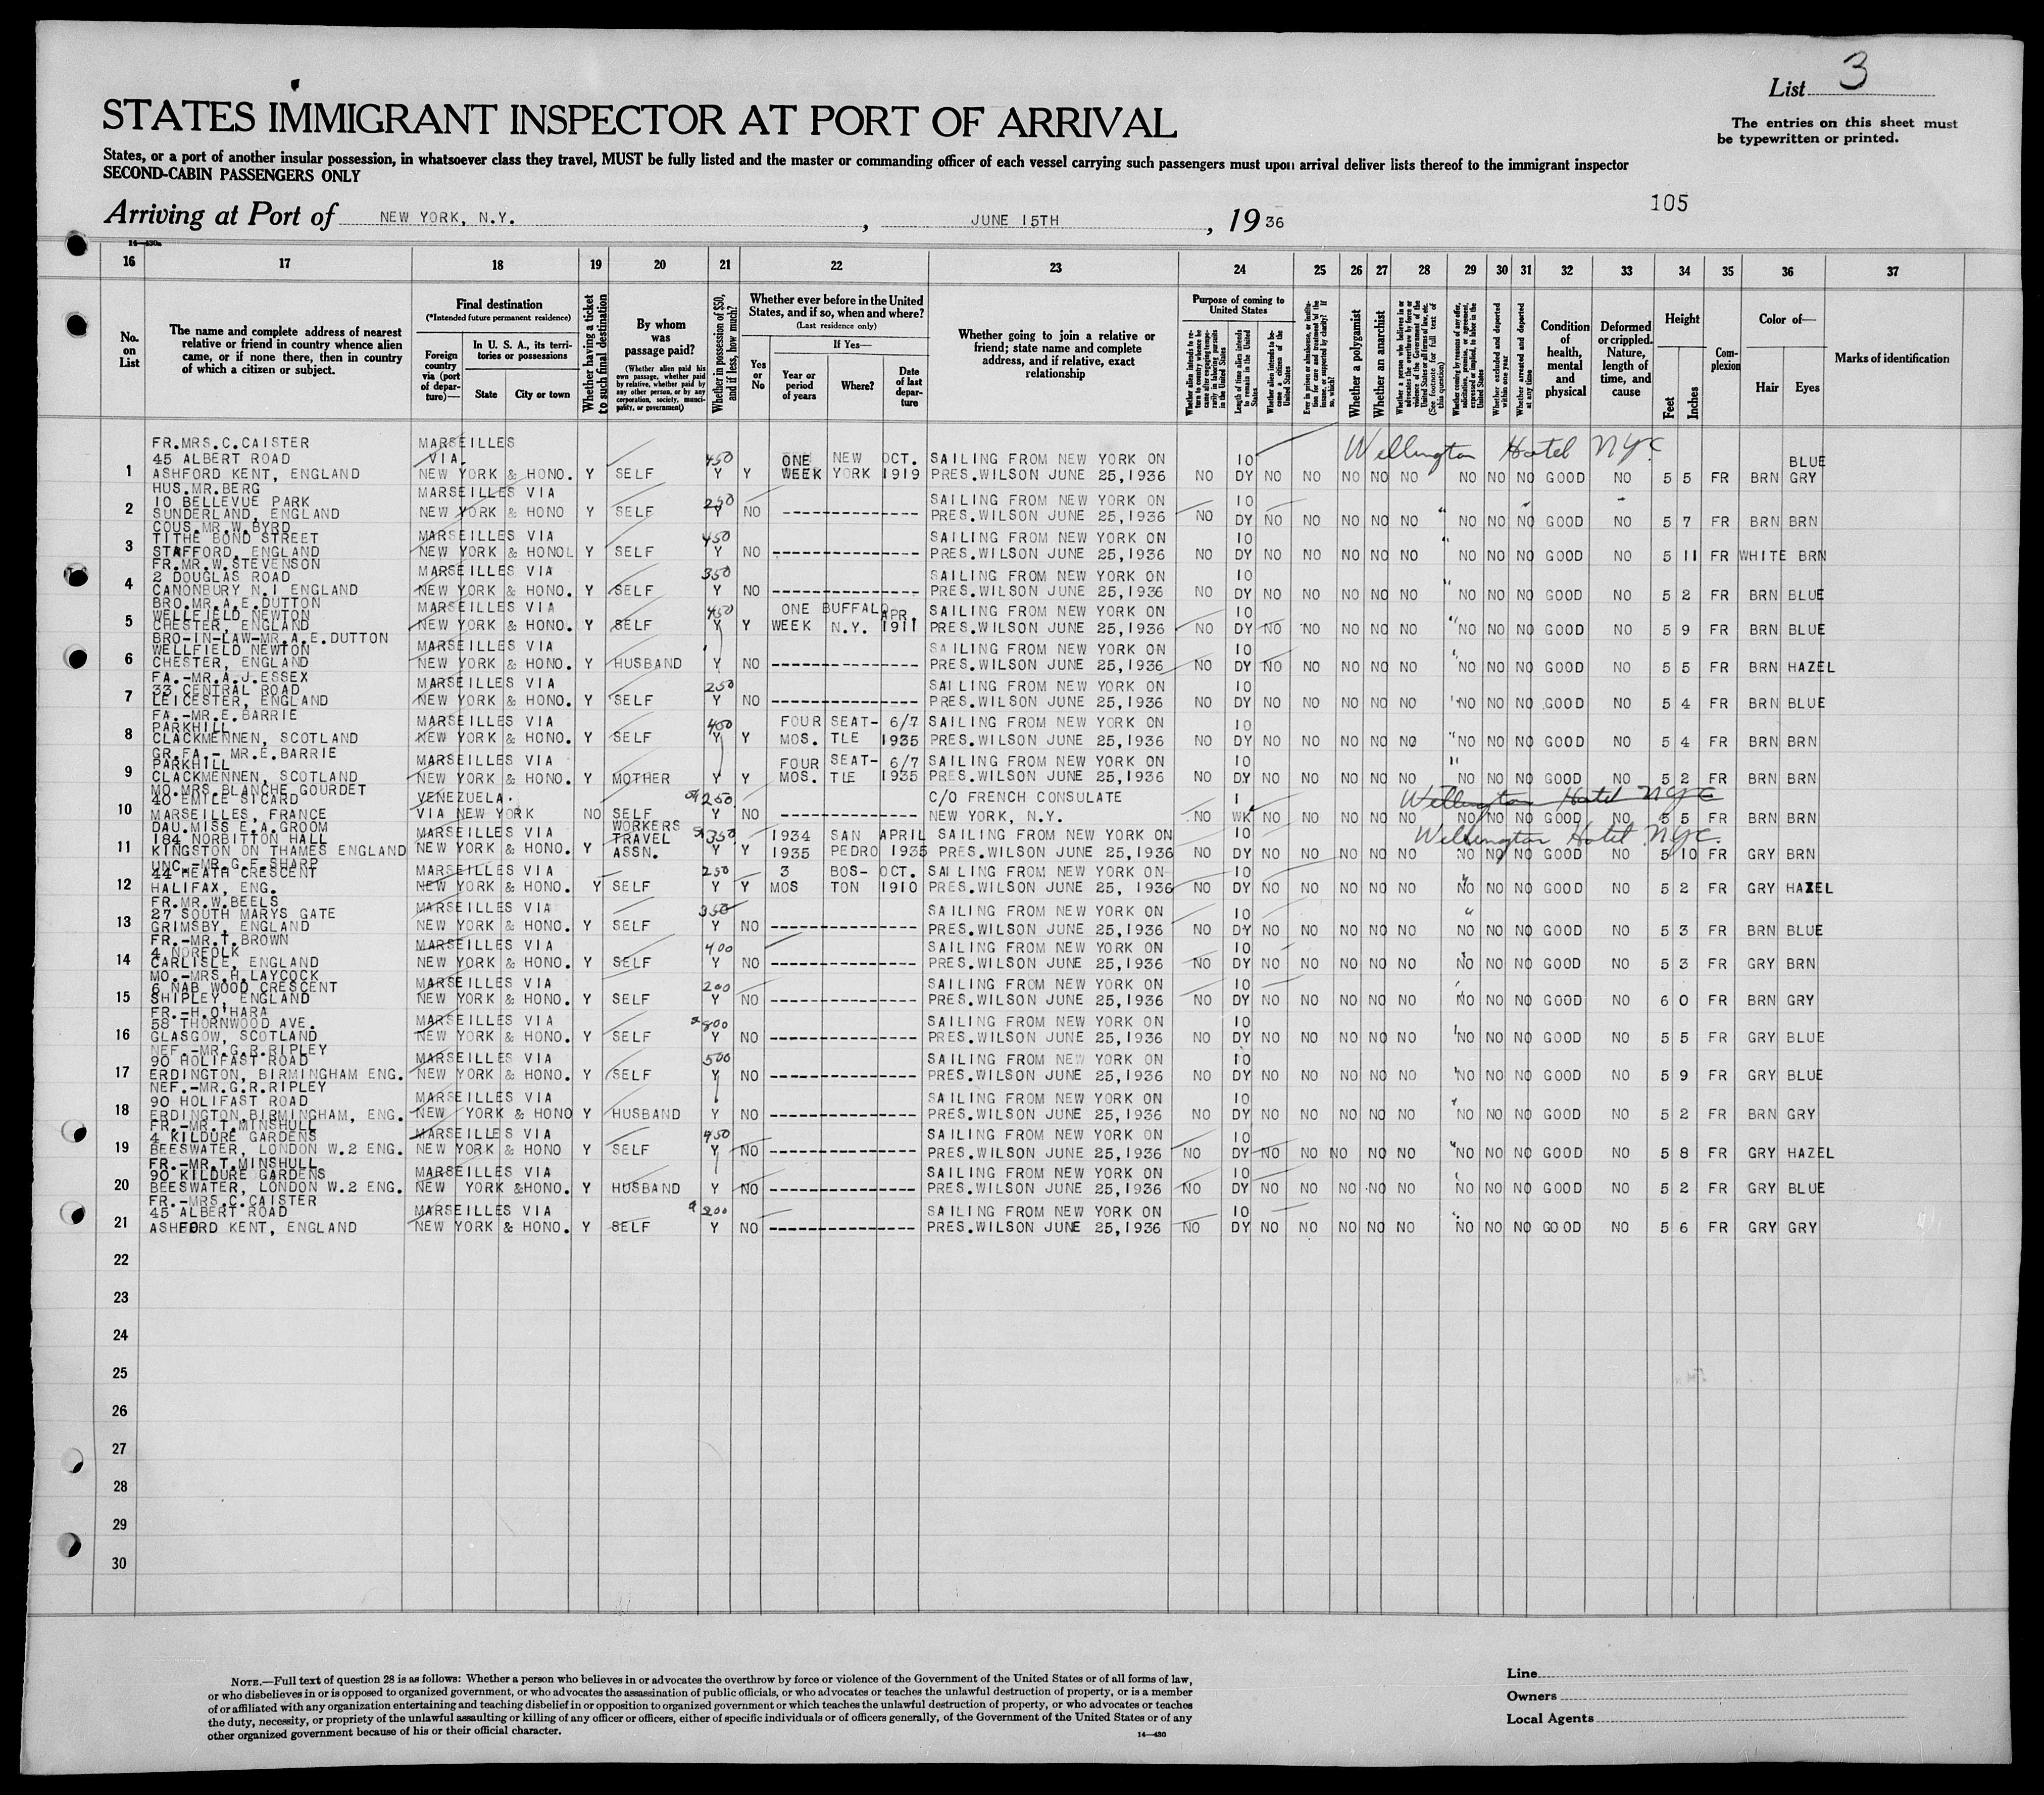 List 3
The entries on this sheet must
be typewritten or printed.
STATES IMMIGRANT INSPECTOR AT PORT OF ARRIVAL
States, or a port of another insular possession, in whatsoever class they travel, MUST be fully listed and the master or commanding officer of each vessel carrying such passengers must upon arrival deliver lists thereof to the immigrant inspector
SECOND-CABIN PASSENGERS ONLY
105
Arriving at Port of NEW YORK, N.Y. , JUNE 15TH , 19 36
16 17 18 19 20 21 22 23 24 25 26 27 28 29 30 31 32 33 34 35 36 37
No. on List
The name and complete address of nearest relative or friend in country whence alien came, or if none there, then in country of which a citizen or subject.
Final destination
(*Intended future permanent residence)
Foreign country via (port of departure)—
In U. S. A., its territories or possessions
State City or town
Whether having a ticket to such final destination
By whom was passage paid?
(Whether alien paid his own passage, whether paid by relative, whether paid by any other person, or by any corporation, society, municipality, or government)
Whether in possession of $50, and if less, how much?
Whether ever before in the United States, and if so, when and where?
(Last residence only)
Yes or No
If Yes—
Year or period of years
Where?
Date of last departure
Whether going to join a relative or friend; state name and complete address, and if relative, exact relationship
Purpose of coming to United States
Length of time alien intends to remain in the United States
Whether alien intends to become a citizen of the United States
Whether a polygamist
Whether an anarchist
Whether excluded and deported within one year
Whether arrested and deported at any time
Condition of health, mental and physical
Deformed or crippled. Nature, length of time, and cause
Height
Feet Inches
Complexion
Color of—
Hair Eyes
Marks of identification
FR.MRS.C.CAISTER MARSEILLES Wellington Hotel NYC
45 ALBERT ROAD VIA. 450 ONE NEW OCT. SAILING FROM NEW YORK ON 10 BLUE
1 ASHFORD KENT, ENGLAND NEW YORK & HONO. Y SELF Y WEEK YORK 1919 PRES.WILSON JUNE 25,1936 NO DY NO NO NO NO NO NO NO NO GOOD NO 5 5 FR BRN GRY
HUS.MR.BERG MARSEILLES VIA
10 BELLEVUE PARK 250 SAILING FROM NEW YORK ON 10
2 SUNDERLAND, ENGLAND NEW YORK & HONO Y SELF Y NO ---------------- PRES.WILSON JUNE 25,1936 NO DY NO NO NO NO NO " NO NO NO GOOD NO 5 7 FR BRN BRN
COUS.MR.W.BYRD
TITHE BOND STREET MARSEILLES VIA 450 SAILING FROM NEW YORK ON 10
3 STAFFORD, ENGLAND NEW YORK & HONOL Y SELF Y NO ---------------- PRES.WILSON JUNE 25,1936 NO DY NO NO NO NO NO " NO NO NO GOOD NO 5 11 FR WHITE BRN
FR.MR.W.STEVENSON
2 DOUGLAS ROAD MARSEILLES VIA 350 SAILING FROM NEW YORK ON 10
4 CANONBURY N.1 ENGLAND NEW YORK & HONO. Y SELF Y NO ---------------- PRES.WILSON JUNE 25,1936 NO DY NO NO NO NO NO " NO NO NO GOOD NO 5 2 FR BRN BLUE
BRO.MR.A.E.DUTTON
WELLFIELD NEWTON MARSEILLES VIA 450 ONE BUFFALO APR. SAILING FROM NEW YORK ON 10
5 CHESTER, ENGLAND NEW YORK & HONO. Y SELF Y Y WEEK N.Y. 1911 PRES.WILSON JUNE 25,1936 NO DY NO NO NO NO NO " NO NO NO GOOD NO 5 9 FR BRN BLUE
BRO-IN-LAW-MR.A.E.DUTTON
WELLFIELD NEWTON MARSEILLES VIA SAILING FROM NEW YORK ON 10
6 CHESTER, ENGLAND NEW YORK & HONO. Y HUSBAND Y NO ---------------- PRES.WILSON JUNE 25,1936 NO DY NO NO NO NO NO " NO NO NO GOOD NO 5 5 FR BRN HAZEL
FA.-MR.A.J.ESSEX
33 CENTRAL ROAD MARSEILLES VIA 250 SAILING FROM NEW YORK ON 10
7 LEICESTER, ENGLAND NEW YORK & HONO. Y SELF Y NO ---------------- PRES.WILSON JUNE 25,1936 NO DY NO NO NO NO NO " NO NO NO GOOD NO 5 4 FR BRN BLUE
FA.-MR.E.BARRIE
PARKHILL MARSEILLES VIA 400 FOUR SEAT- 6/7 SAILING FROM NEW YORK ON 10
8 CLACKMENNEN, SCOTLAND NEW YORK & HONO. Y SELF Y Y MOS. TLE 1935 PRES.WILSON JUNE 25,1936 NO DY NO NO NO NO NO " NO NO NO GOOD NO 5 4 FR BRN BRN
GR.FA.- MR.E.BARRIE
PARKHILL MARSEILLES VIA FOUR SEAT- 6/7 SAILING FROM NEW YORK ON 10
9 CLACKMENNEN, SCOTLAND NEW YORK & HONO. Y MOTHER Y Y MOS. TLE 1935 PRES.WILSON JUNE 25,1936 NO DY NO NO NO NO NO " NO NO NO GOOD NO 5 2 FR BRN BRN
MO.MRS.BLANCHE GOURDET
40 EMILE SICARD VENEZUELA. 250 C/O FRENCH CONSULATE 1 Wellington Hotel NYC
10 MARSEILLES, FRANCE VIA NEW YORK NO SELF Y NO ---------------- NEW YORK, N.Y. NO WK NO NO NO NO NO NO NO NO GOOD NO 5 5 FR BRN BRN
DAU.MISS E.A.GROOM WORKERS
184 NORBITTON HALL MARSEILLES VIA TRAVEL 350 1934 SAN APRIL SAILING FROM NEW YORK ON 10 Wellington Hotel NYC.
11 KINGSTON ON THAMES ENGLAND NEW YORK & HONO. Y ASSN. Y Y 1935 PEDRO 1935 PRES.WILSON JUNE 25,1936 NO DY NO NO NO NO NO NO NO NO GOOD NO 5 10 FR GRY BRN
UNC.-MR.G.F.SHARP
44 HEATH CRESCENT MARSEILLES VIA 250 3 BOS- OCT. SAILING FROM NEW YORK ON 10
12 HALIFAX, ENG. NEW YORK & HONO. Y SELF Y Y MOS TON 1910 PRES.WILSON JUNE 25, 1936 NO DY NO NO NO NO NO " NO NO NO GOOD NO 5 2 FR GRY HAZEL
FR.MR.W.BEELS
27 SOUTH MARYS GATE MARSEILLES VIA 350 SAILING FROM NEW YORK ON 10
13 GRIMSBY, ENGLAND NEW YORK & HONO. Y SELF Y NO ---------------- PRES.WILSON JUNE 25,1936 NO DY NO NO NO NO NO " NO NO NO GOOD NO 5 3 FR BRN BLUE
FR.-MR.T.BROWN
4 NORFOLK MARSEILLES VIA 400 SAILING FROM NEW YORK ON 10
14 CARLISLE, ENGLAND NEW YORK & HONO. Y SELF Y NO ---------------- PRES.WILSON JUNE 25,1936 NO DY NO NO NO NO NO NO NO NO GOOD NO 5 3 FR GRY BRN
MO.-MRS.H.LAYCOCK
6 NAB WOOD CRESCENT MARSEILLES VIA 200 SAILING FROM NEW YORK ON 10
15 SHIPLEY, ENGLAND NEW YORK & HONO. Y SELF Y NO ---------------- PRES.WILSON JUNE 25,1936 NO DY NO NO NO NO NO NO NO NO GOOD NO 6 0 FR BRN GRY
FR.-H.O'HARA
58 THORNWOOD AVE. MARSEILLES VIA 800 SAILING FROM NEW YORK ON 10
16 GLASGOW, SCOTLAND NEW YORK & HONO. Y SELF Y NO ---------------- PRES.WILSON JUNE 25,1936 NO DY NO NO NO NO NO NO NO NO GOOD NO 5 5 FR GRY BLUE
NEF.-MR.G.R.RIPLEY
90 HOLIFAST ROAD MARSEILLES VIA 500 SAILING FROM NEW YORK ON 10
17 ERDINGTON, BIRMINGHAM ENG. NEW YORK & HONO. Y SELF Y NO ---------------- PRES.WILSON JUNE 25,1936 NO DY NO NO NO NO NO NO NO NO GOOD NO 5 9 FR GRY BLUE
NEF.-MR.G.R.RIPLEY
90 HOLIFAST ROAD MARSEILLES VIA SAILING FROM NEW YORK ON 10
18 ERDINGTON,BIRMINGHAM, ENG. NEW YORK & HONO Y HUSBAND Y NO ---------------- PRES.WILSON JUNE 25,1936 NO DY NO NO NO NO NO NO NO NO GOOD NO 5 2 FR BRN GRY
FR.-MR.T.MINSHULL
4 KILDURE GARDENS MARSEILLES VIA 450 SAILING FROM NEW YORK ON 10
19 BEESWATER, LONDON W.2 ENG. NEW YORK & HONO Y SELF Y NO ---------------- PRES.WILSON JUNE 25,1936 NO DY NO NO NO NO NO " NO NO NO GOOD NO 5 8 FR GRY HAZEL
FR.-MR.T.MINSHULL
90 KILDURE GARDENS MARSEILLES VIA SAILING FROM NEW YORK ON 10
20 BEESWATER, LONDON W.2 ENG. NEW YORK &HONO. Y HUSBAND Y NO ---------------- PRES.WILSON JUNE 25,1936 NO DY NO NO NO NO NO NO NO NO GOOD NO 5 2 FR GRY BLUE
FR.-MRS.C.CAISTER
45 ALBERT ROAD MARSEILLES VIA 200 SAILING FROM NEW YORK ON 10
21 ASHFORD KENT, ENGLAND NEW YORK & HONO. Y SELF Y NO ---------------- PRES.WILSON JUNE 25,1936 NO DY NO NO NO NO NO NO NO NO GOOD NO 5 6 FR GRY GRY
22
23
24
25
26
27
28
29
30
NOTE.—Full text of question 28 is as follows: Whether a person who believes in or advocates the overthrow by force or violence of the Government of the United States or of all forms of law,
or who disbelieves in or is opposed to organized government, or who advocates the assassination of public officials, or who advocates or teaches the unlawful destruction of property, or is a member
of or affiliated with any organization entertaining and teaching disbelief in or opposition to organized government or which teaches the unlawful destruction of property, or who advocates or teaches
the duty, necessity, or propriety of the unlawful assaulting or killing of any officer or officers, either of specific individuals or of officers generally, of the Government of the United States or of any
other organized government because of his or their official character.
14—430
Line
Owners
Local Agents